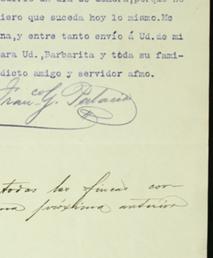 iero que suceda hoy lo mismo. Me
na, y entre tanto envío á Ud. de mi
ara Ud., Barbarita y toda su fami-
dicto amigo y servidor afmo.
Fran.co G.
todas las fincas con
próxima anterior